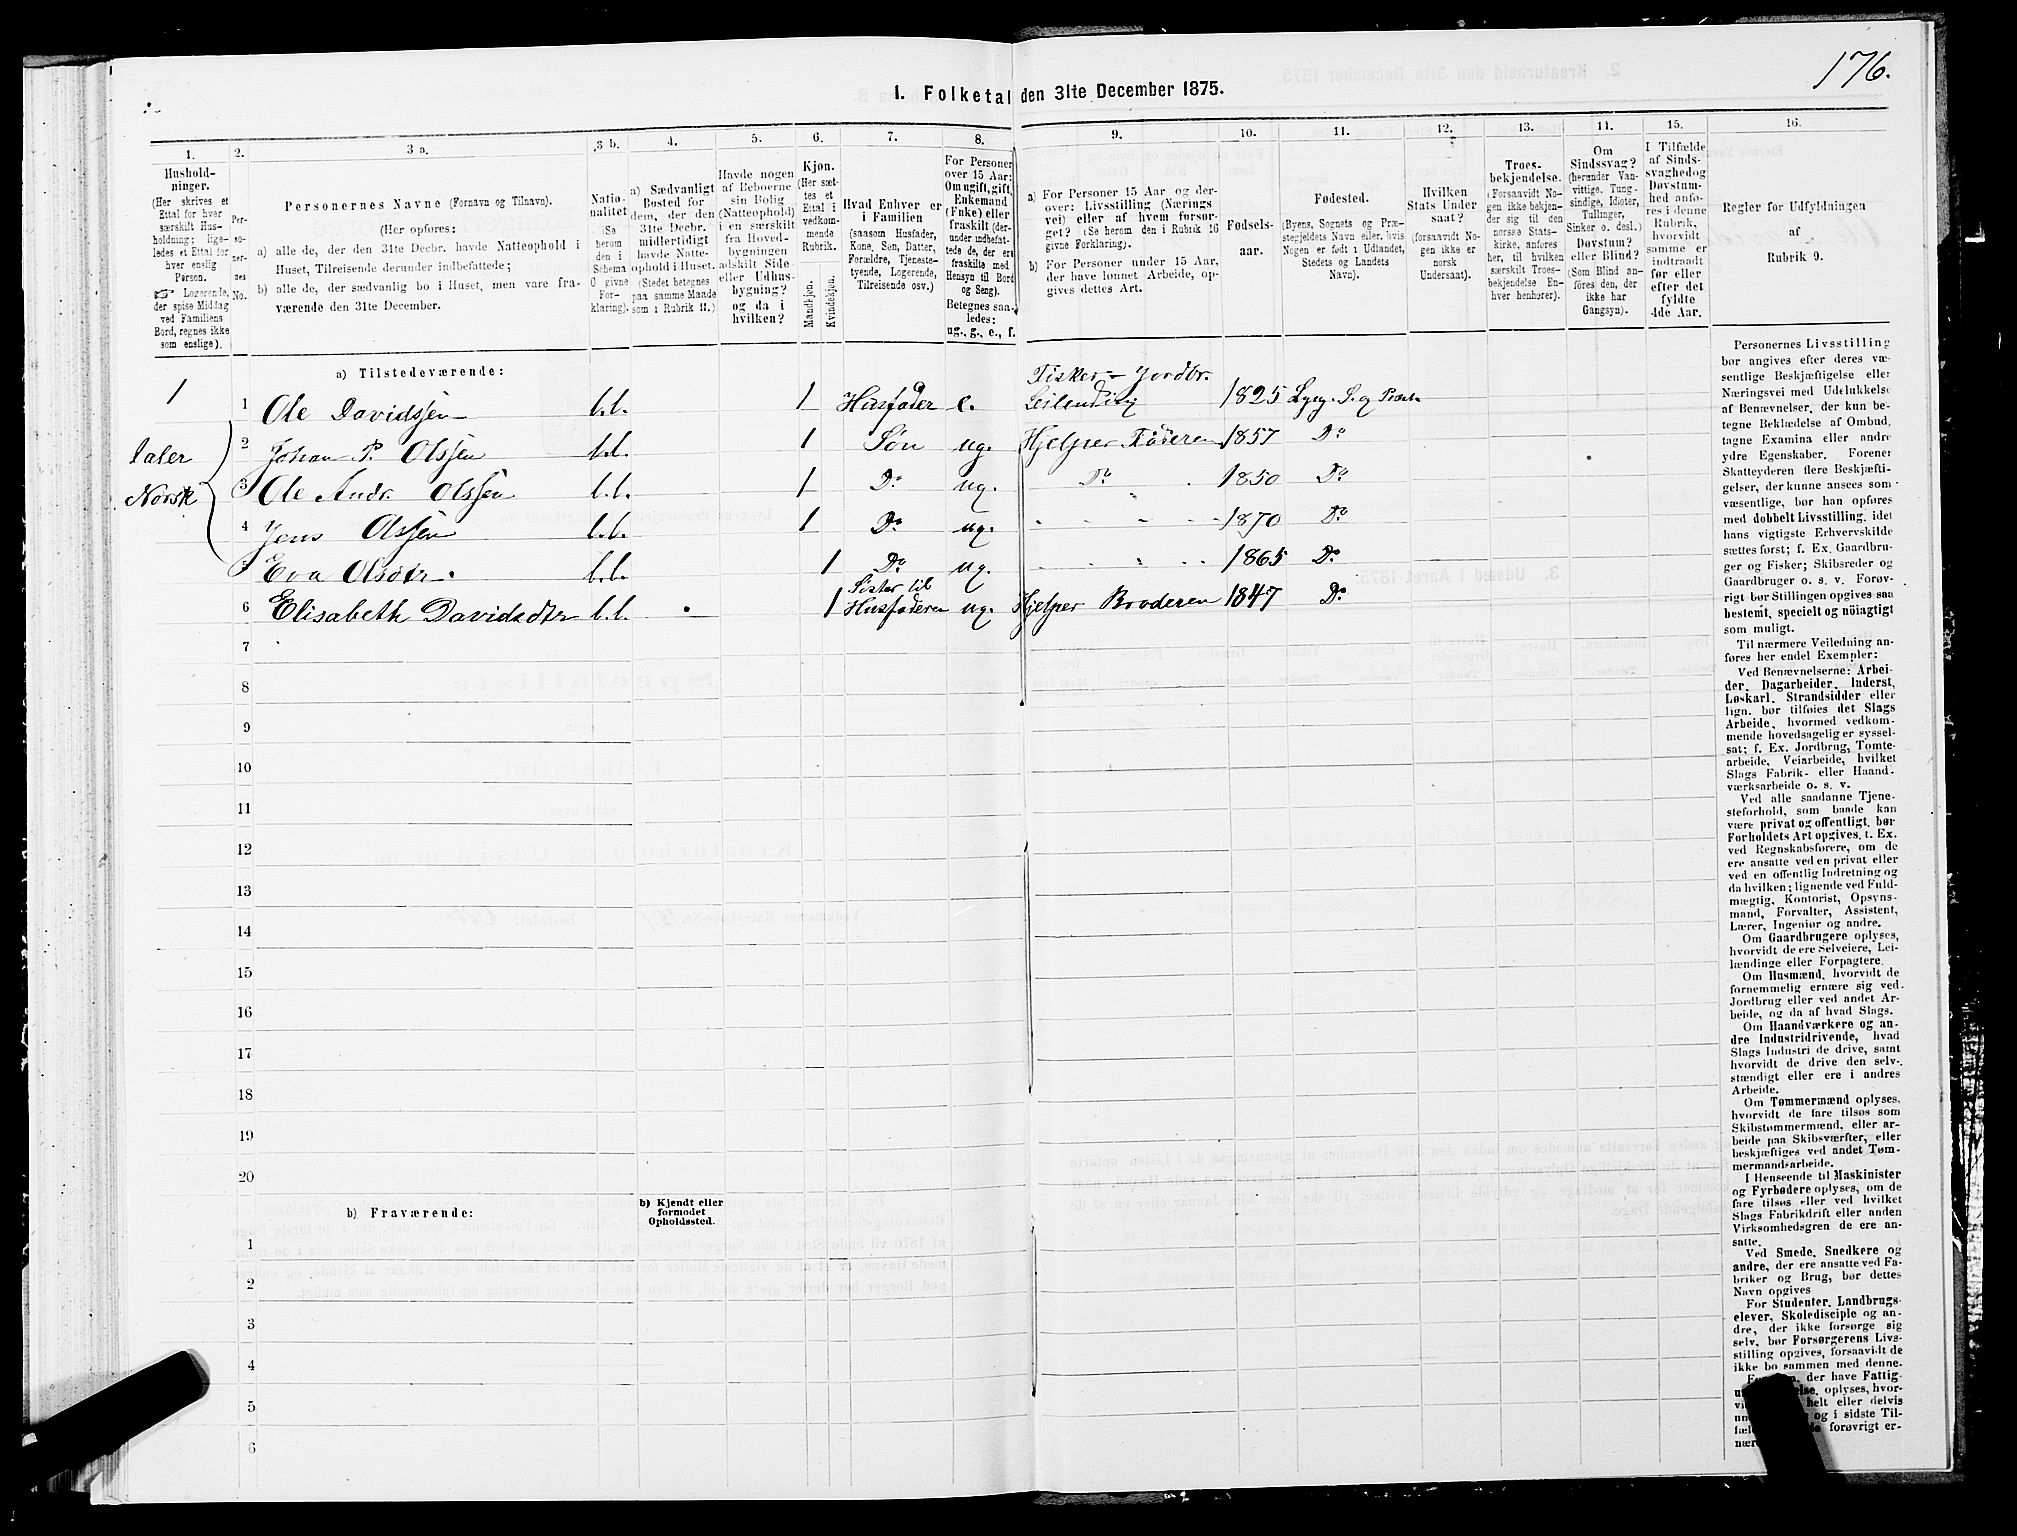 176.
1. Folketal den 31te December 1875.
1. 2. 3 a. 3 b. 4. 5. 6. 7. 8. 9. 10. 11. 12. 13. 14. 15. 16.
Hushold-
ninger.
(Her skrives et
Ettal for hver
særskilt Hus-
holdning; lige-
ledes et Ettal for
hver enslig
Person.
Logerende,
der spise Middag
ved Familiens
Bord, regnes ikke
som enslige).
Per-
so-
ner-
nes
No.
Personernes Navne (Fornavn og Tilnavn).
(Her opføres:
a) alle de, der den 31te Decbr. havde Natteophold i
Huset, Tilreisende derunder indbefattede;
b) alle de, der sædvanlig bo i Huset, men vare fra-
værende den 31te December.
Natio-
nalitet
(Se
herom
den i
Schema
C givne
For-
klaring).
a) Sædvanligt
Bosted for
dem, der den
31te Decbr.
midlertidigt
havde Natte-
ophold i Huset.
(Stedet betegnes
paa samme Maade
som i Rubrik 11.)
Havde nogen
af Beboerne
sin Bolig
(Natteophold)
i en særskilt
fra Hoved-
bygningen
adskilt Side-
eller Udhus-
bygning?
og da i
hvilken?
Kjøn.
(Her sæt-
tes et
Ettal i
vedkom-
mende
Rubrik.
Mandkjøn.
Kvindekjøn.
Hvad Enhver er
i Familien
(saasom Husfader,
Kone, Søn, Datter,
Forældre, Tjeneste-
tyende, Logerende,
Tilreisende osv.)
For Personer
over 15 Aar:
Om ugift, gift,
Enkemand
(Enke) eller
fraskilt (der-
under indbefat-
tede de, der ere
fraskilte med
Hensyn til Bord
og Seng).
Betegnes saa-
ledes:
ug., g., e., f.
a) For Personer 15 Aar og der-
over: Livsstilling (Nærings
vei) eller af hvem forsør-
get? (Se herom den i Rubrik 16
givne Forklaring).
b) For Personer under 15 Aar,
der have lønnet Arbeide, op-
gives dettes Art.
Fødsels-
aar.
Fødested.
(Byens, Sognets og Præ-
stegjeldets Navn eller, hvis
Nogen er født i Udlandet,
Stedets og Landets
Navn).
Hvilken
Stats Under
saat?
(forsaavidt No-
gen ikke er
norsk
Undersaat).
Troes-
bekjendelse.
(Forsaavidt No-
gen ikke bekjen-
der sig til den
norske Stats-
kirke, anføres
her, til hvilken
særskilt Troes-
bekjendelse En-
hver henhører).
Om
Sindssvag?
(herunder Van-
vittige, Tung-
sindige, Idioter,
Tullinger,
Sinker o. desl.)
Døvstum?
eller Blind?
(Som Blind an-
føres den, der
ikke har
Gangsyn).
I Tilfælde
af Sinds-
svaghed og
Døvstum-
hed anfø-
res i denne
Rubrik,
hvorvidt
samme er
indtraadt
før eller
efter det
fyldte
4de Aar.
Regler for Udfyldningen
af
Rubrik 9.
a) Tilstedeværende:
Fisker - Jordbr.
1 1 Ole Davidssen b.b. 1 Husfader e. Leilending 1825 Lyng. S. og Præst.
Taler
2 Johan P. Olssen b.b. 1 Søn ug. Hjelper Faderen 1857 Do
Norsk
3 Ole Andr. Olssen b.b. 1 Do ug. Do 1850 Do
4 Jens Olssen b.b. 1 Do ug. 1870 Do
5 Eva Olsdtr. b.b. 1 Do ug. 1865 Do
Sister til
6 Elisabeth Davidsdtr b.b. 1 Husfaderen ug. Hjelper Broderen 1847 Do
7
8
9
10
11
12
13
14
15
16
17
18
19
20
b) Fraværende:
b) Kjendt eller
formodet
Opholdssted.
1
2
3
4
5
6
Personernes Livsstilling
bør angives efter deres væ-
sentlige Beskjæftigelse eller
Næringsvei med Udelukkelse
af Benævnelser, der kun be-
tegne Beklædelse af Ombud,
tagne Examina eller andre
ydre Egenskaber. Forener
Skatteyderen flere Beskjæfti-
gelser, der kunne ansees som
væsentlige, bør han opføres
med dobbelt Livsstilling, idet
hans vigtigste Erhvervskilde
sættes først; f. Ex. Gaardbru-
ger og Fisker; Skibsreder og
Gaardbruger o. s. v. Forøv-
rigt bør Stillingen opgives saa
bestemt, specielt og nöiagtigt
som muligt.
Til nærmere Veiledning an-
føres her endel Exempler:
Ved Benævnelserne: Arbei-
der, Dagarbeider, Inderst,
Løskarl, Strandsidder eller
lign. bør tilføies det Slags
Arbeide, hvormed vedkom-
mende hovedsagelig er syssel-
sat; f. Ex. Jordbrug, Tomte-
arbeide, Veiarbeide, hvilket
Slags Fabrik- eller Haand-
værksarbeide o. s. v.
Ved alle saadanne Tjene-
steforhold, som baade kan
være privat og offentligt, bør
Forholdets Art opgives, t. Ex.
ved Regnskabsførere, om de
ere ansatte ved en privat eller
ved en offentlig Indretning og
da hvilken; lignende ved Fuld-
mægtig, Kontorist, Opsyns-
mand, Forvalter, Assistent,
Lærer, Ingeniør og andre.
Om Gaardbrugere oplyses,
hvorvidt de ere Selveiere, Lei-
lændinge eller Forpagtere.
Om Husmænd, hvorvidt de
fornemmelig ernære sig ved
Jordbrug eller ved andet Ar-
beide, og da af hvad Slags.
Om Haandværkere og an-
dre Industridrivende, hvad
Slags Industri de drive, samt
hvorvidt de drive den selv-
stændigt eller ere i andres
Arbeide.
Om Tømmermænd oplyses,
hvorvidt de fare tilsøs som
Skibstømmermænd, eller ar-
beide paa Skibsværfter, eller
beskjæftiges ved andet Tøm-
mermandsarbeide.
I Henseende til Maskinister
og Fyrbødere oplyses, om de
fare tilsøs eller ved hvilket
Slags Fabrikdrift eller anden
Virksomhedsgren de ere an-
satte.
Ved Smede, Snedkere og
andre, der ere ansatte ved Fa-
briker og Brug, bør dettes
Navn opgives
For Studenter, Landbrugs-
elever, Skoledisciple og an-
dre, der ikke forsørge sig
selv, bør Forsørgerens Livs-
stilling opgives, forsaavidt de
ikke bo sammen med denne.
der have Fattig-
oplyses, hvor-
helt eller delvis
og i sidste Til-
forøvrigt er-